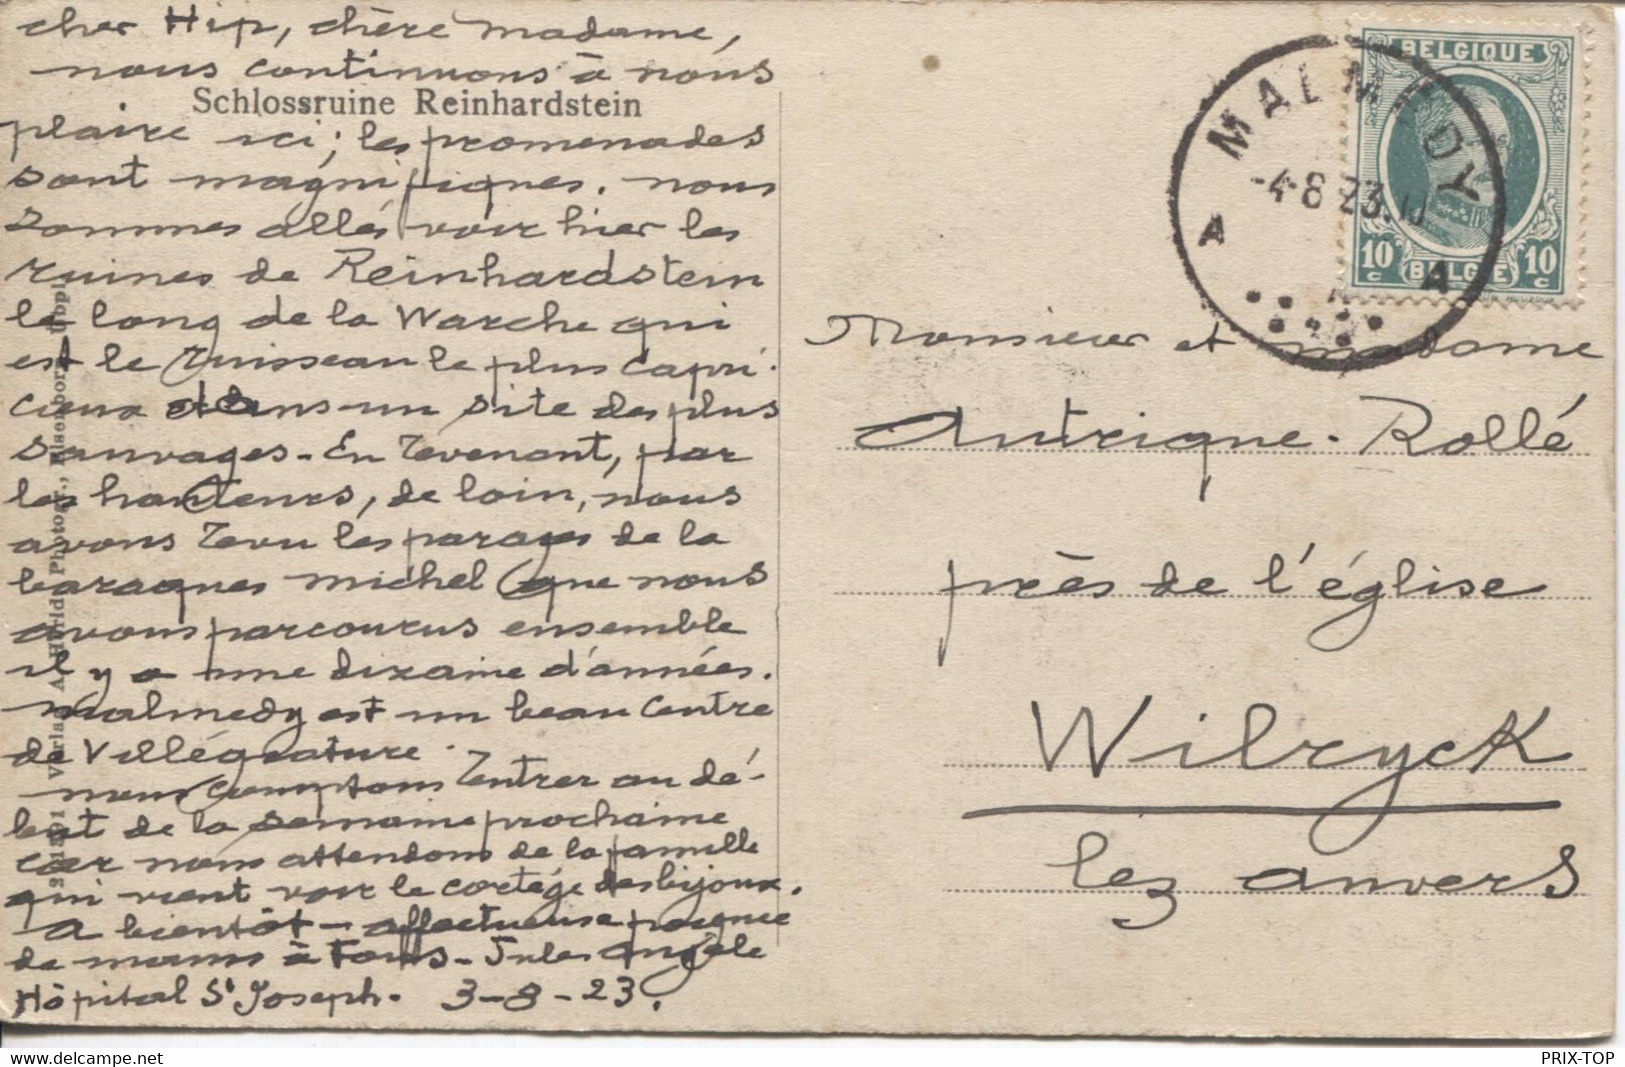 cher Hip, chère madame,
nous continuons à nous
Schlossruine Reinhardstein
plaire ici; les promenades
sont magnifiques. nous
sommes allés voir hier les
ruines de Reinhardstein
le long de la Warche qui
est le ruisseau le plus capri-
cieux dans un site des plus
sauvages - En revenant, par
les hauteurs, de loin, nous
avons revu les parages de la
baraques michel que nous
avons parcourus ensemble
il y a une dizaine d'années.
malmedy est un beau centre
de villégiature.
nous comptons rentrer au dé-
but de la semaine prochaine
car nous attendons de la famille
qui vient voir le cortège des bijoux.
A bientôt - affectueuse poignée
de mains à Tous - Jules Angèle
Hôpital St Joseph. 3-8-23.
Verlag A. Photogr., Elsenborn
BELGIQUE
10 c BELGIË 10 c
MALMEDY
-4-8 23
A A
Monsieur et madame
Antrique-Rollé
près de l'église
Wilryck
lez anvers
https://www.delcampe.net
PRIX-TOP